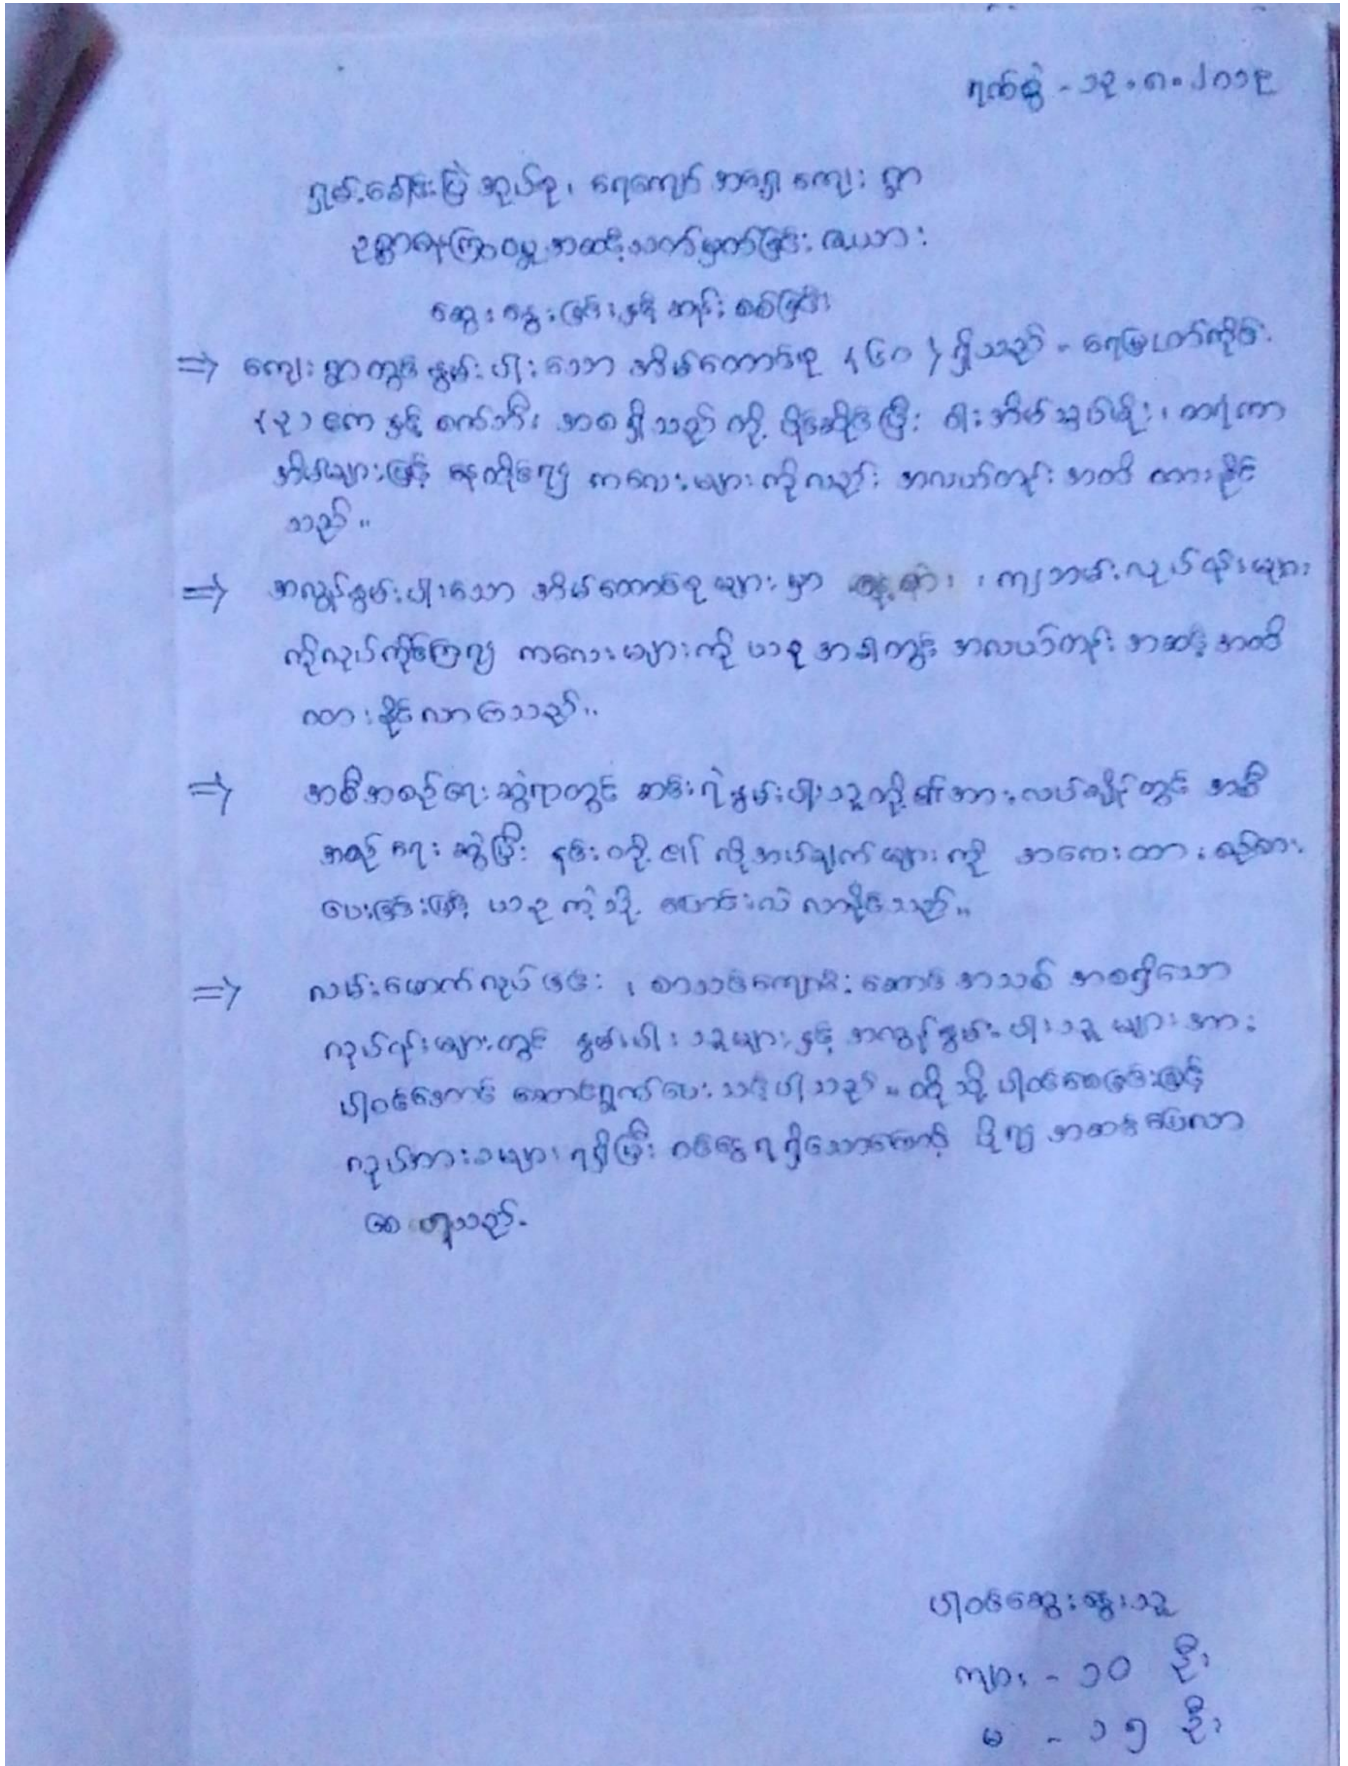 ရက်စွဲ - ၁၃.၈.၂၀၁၉
ရှမ်းခေါင်းပြဲ အုပ်စု၊ ရေကျော် အရှေ့ ကျေး ရွာ
ဥစ္စာဓနကြွယ်ဝမှု အဆင့်သတ်မှတ်ခြင်း ဇယား
ဆွေးနွေးခြင်းနှင့် ဆန်းစစ်ခြင်း
⇒ ကျေးရွာတွင် နွမ်းပါးသော အိမ်ထောင်စု (၆၀) ရှိသည်။ ရေမြေပတ်ဝိုင်း
(၃) ဧက နှင့် စက်ဘီး အစရှိသည်ကို ပိုင်ဆိုင်ပြီး ဝါးအိမ် သွပ်မိုး၊ ထရံကာ
အိမ်များဖြင့် နေထိုင်၍ ကလေးများကိုလည်း အလယ်တန်းအထိ ထားနိုင်
သည်။
⇒ အလွန်နွမ်းပါးသော အိမ်ထောင်စုများမှာ ၊ ကျဘမ်းလုပ်ငန်းများ
ကိုလုပ်ကိုင်ကြ၍ ကလေးများကို ယခုအခါတွင် အလယ်တန်းအဆင့်အထိ
ထားနိုင်လာကြသည်။
⇒ အစီအစဉ်ရေးဆွဲရာတွင် ဆင်းရဲနွမ်းပါးသူတို့၏ အားလပ်ချိန်တွင် အစီ
အစဉ် ရေးဆွဲပြီး ၎င်းတို့၏ လိုအပ်ချက်များကို အလေးထား စဉ်းစား
ပေးခြင်းဖြင့် ယခုကဲ့သို့ ပြောင်းလဲလာနိုင်သည်။
⇒ လမ်းဖောက်လုပ်ခြင်း၊ စာသင်ကျောင်းဆောင်အသစ် အစရှိသော
လုပ်ငန်းများတွင် နွမ်းပါးသူများနှင့် အလွန်နွမ်းပါးသူများအား
ပါဝင်အောင် ဆောင်ရွက်ပေးသင့်ပါသည်။ ထိုသို့ ပါဝင်စေခြင်းဖြင့်
လုပ်အားခများ ရရှိပြီး ဝင်ငွေရရှိသောကြောင့် ပို၍ အဆင်ပြေလာ
စေ ပါသည်။
ပါဝင်ဆွေးနွေးသူ
ကျား - ၁၀ ဦး
မ - ၁၅ ဦး